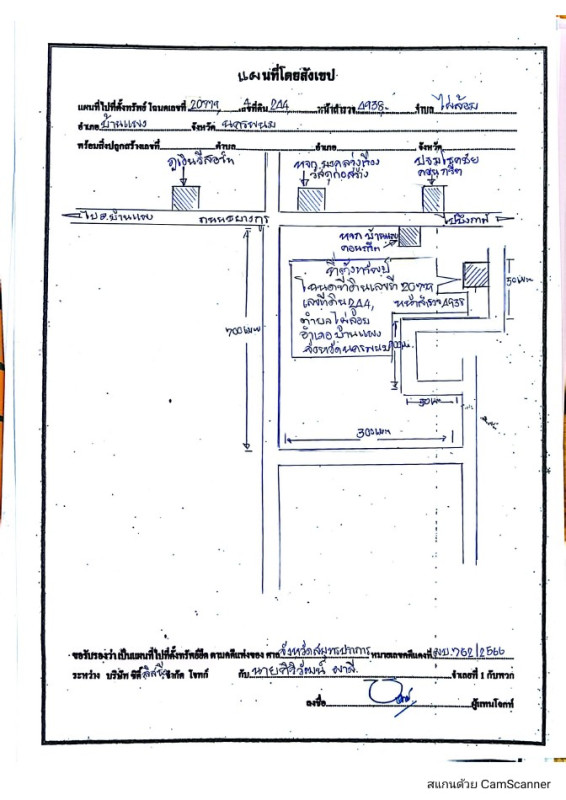 แผนที่โดยสังเขป
แผนที่ไปที่ตั้งทรัพย์ โฉนดเลขที่ 20779 เลขที่ดิน 244 หน้าสำรวจ 4938 ตำบล ไผ่ล้อม
อำเภอ บ้านแพง จังหวัด นครพนม
พร้อมสิ่งปลูกสร้างเลขที่ ตำบล อำเภอ จังหวัด
ภูเงินรีสอร์ท
หจก.
วัสดุก่อสร้าง
คอนกรีต
ไป อ.บ้านแพง
ถนนชยางกูร
ไปบึงกาฬ
หจก. บ้านแพง
คอนกรีต
ที่ตั้งทรัพย์
โฉนดที่ดินเลขที่ 20779
เลขที่ดิน 244, หน้าสำรวจ 4938
ตำบล ไผ่ล้อม
อำเภอ บ้านแพง
จังหวัดนครพนม
50 เมตร
700 เมตร
50 เมตร
300 เมตร
ขอรับรองว่าเป็นแผนที่ไปที่ตั้งทรัพย์ยึด ตามคดีแพ่งของ ศาล จังหวัดสมุทรปราการ หมายเลขคดีแดงที่ ผบ.762/2566
ระหว่าง บริษัท จำกัด โจทก์ กับ นายศิริวัฒน์ จำเลยที่ 1 กับพวก
ลงชื่อ ผู้แทนโจทก์
สแกนด้วย CamScanner